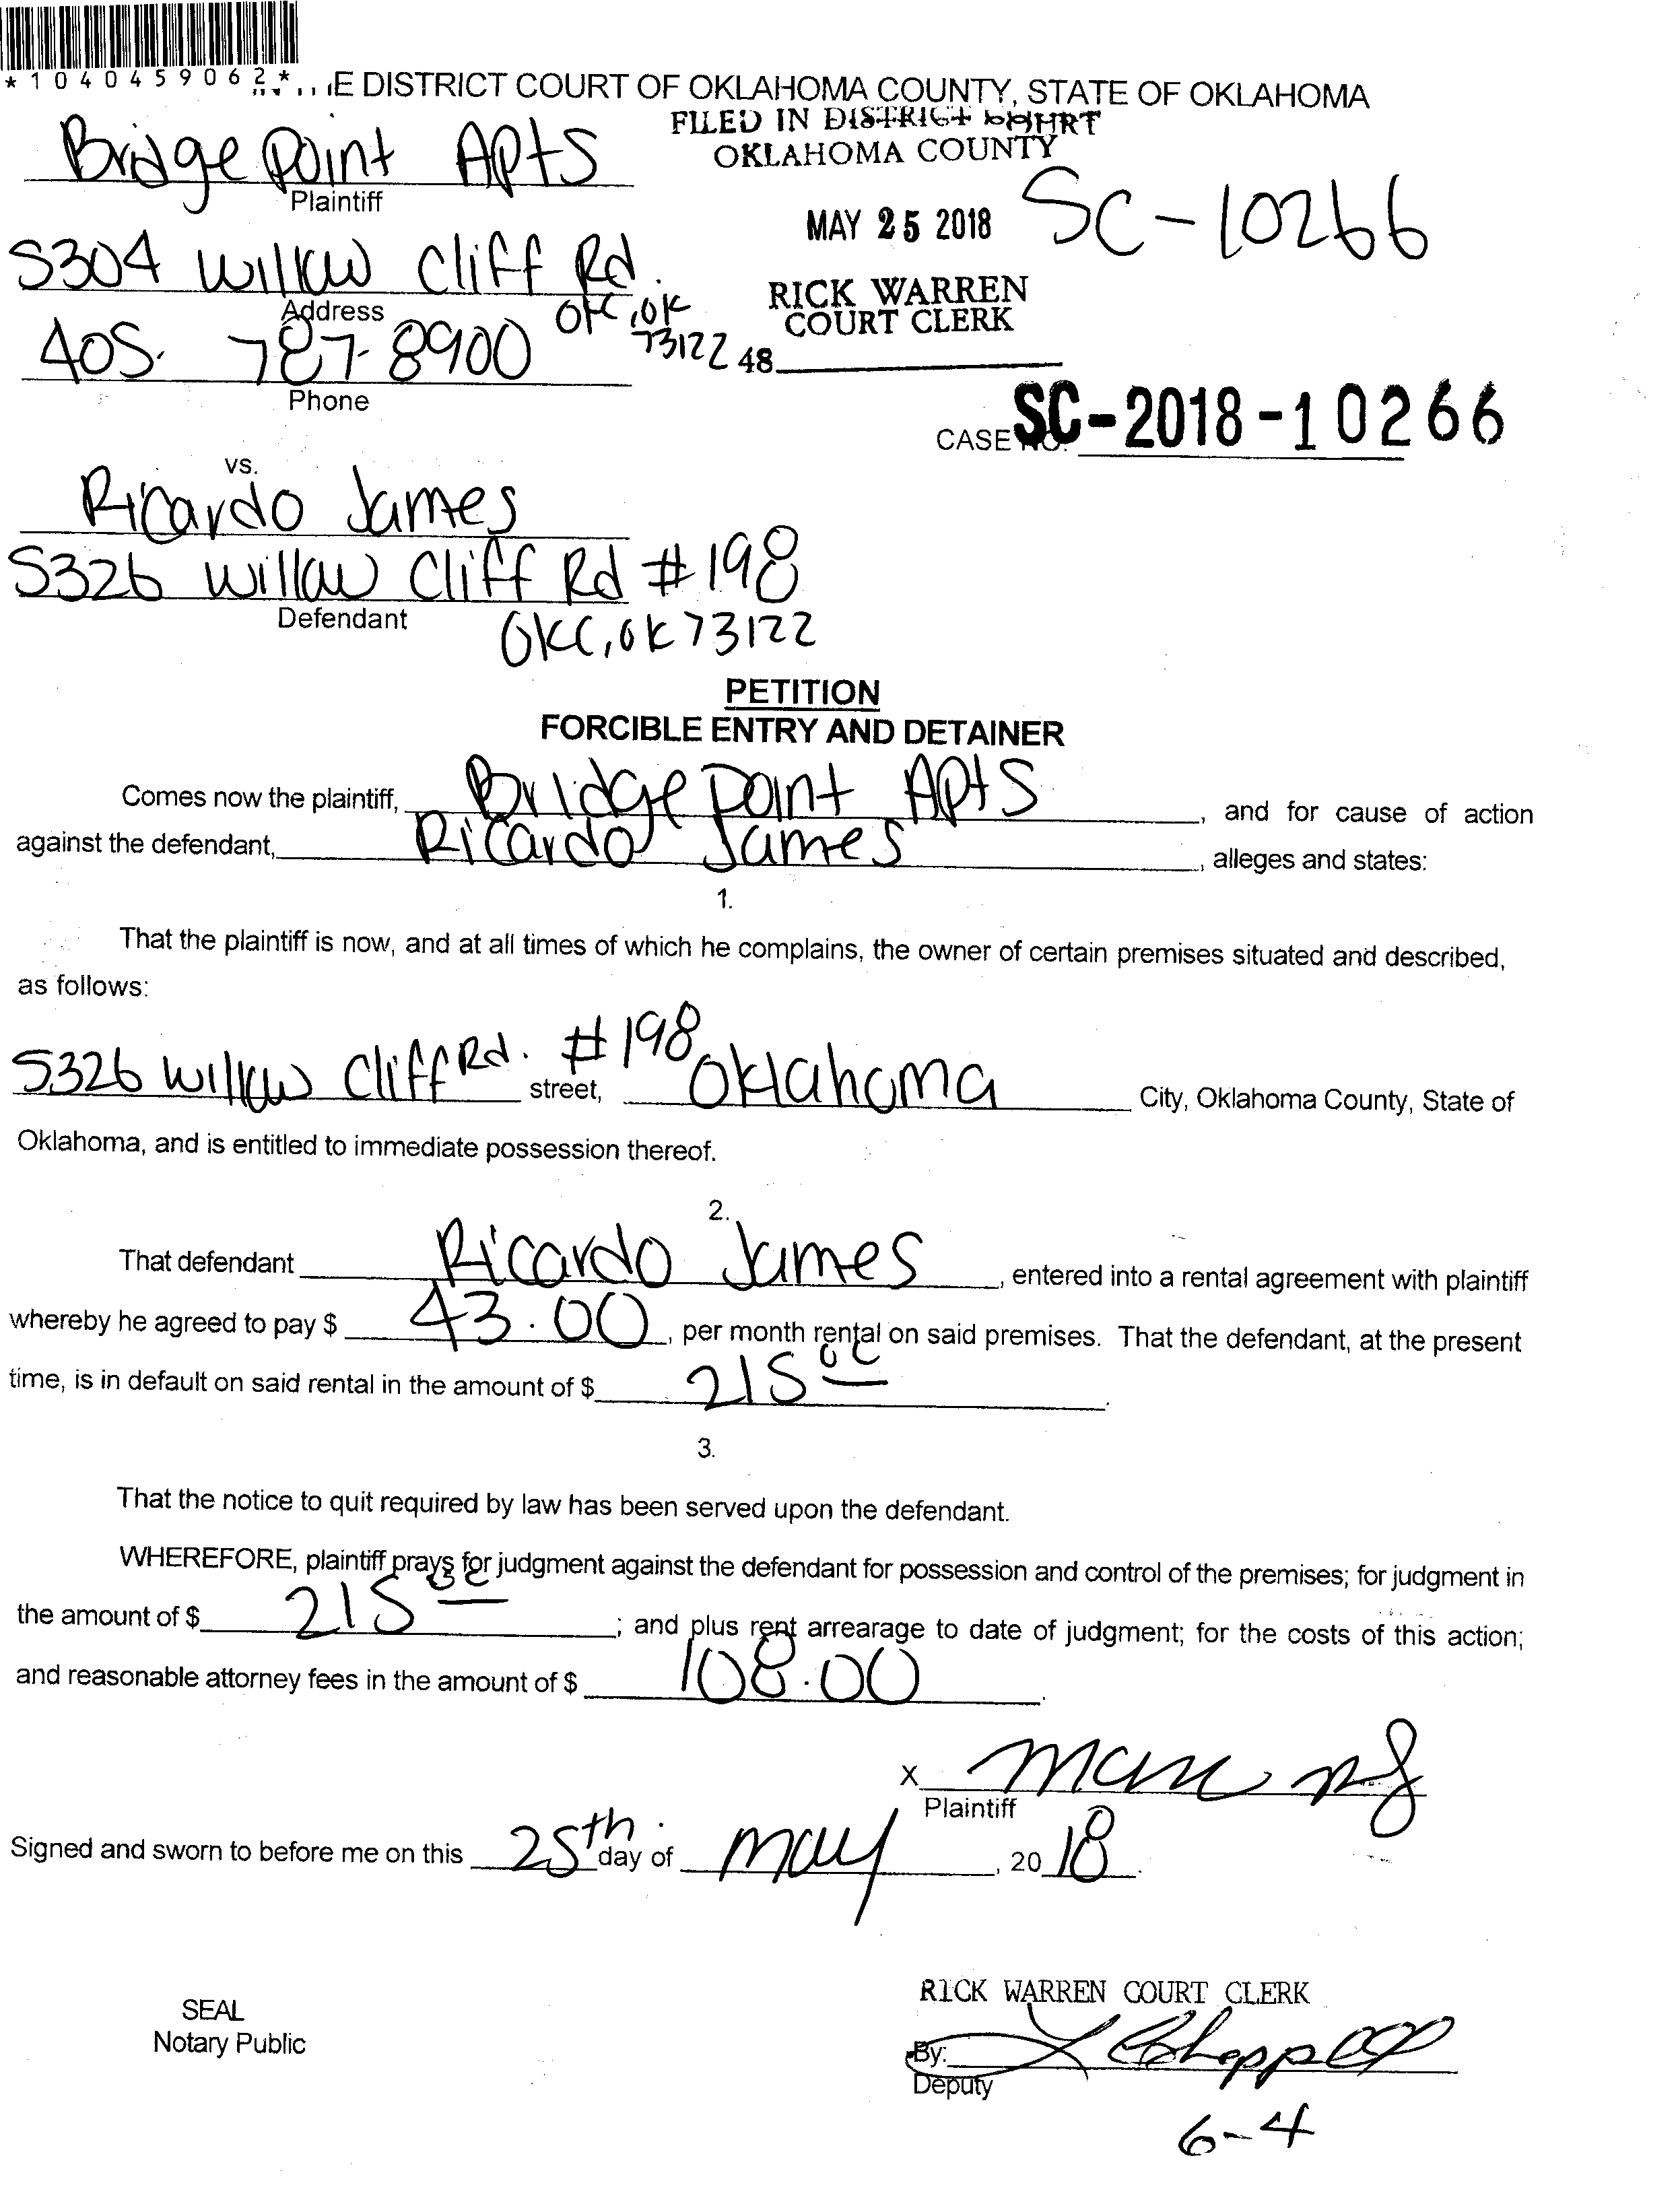 *1040459062*
E DISTRICT COURT OF OKLAHOMA COUNTY, STATE OF OKLAHOMA
FILED IN DISTRICT COURT
OKLAHOMA COUNTY
Bridge Point Apts
Plaintiff
MAY 25 2018
SC-10266
5304 Willow Cliff Rd.
Address
OKC, OK
73122
RICK WARREN
COURT CLERK
405. 787-8900
Phone
48
CASE NO. SC-2018-10266
vs.
Ricardo James
5326 Willow Cliff Rd #198
Defendant
OKC, OK 73122
PETITION
FORCIBLE ENTRY AND DETAINER
Comes now the plaintiff, Bridge Point Apts, and for cause of action
against the defendant, Ricardo James, alleges and states:
1.
That the plaintiff is now, and at all times of which he complains, the owner of certain premises situated and described,
as follows:
5326 Willow Cliff Rd. #198 street, Oklahoma City, Oklahoma County, State of
Oklahoma, and is entitled to immediate possession thereof.
2.
That defendant Ricardo James, entered into a rental agreement with plaintiff
whereby he agreed to pay $ 43.00, per month rental on said premises. That the defendant, at the present
time, is in default on said rental in the amount of $ 215 00.
3.
That the notice to quit required by law has been served upon the defendant.
WHEREFORE, plaintiff prays for judgment against the defendant for possession and control of the premises; for judgment in
the amount of $ 215 00; and plus rent arrearage to date of judgment; for the costs of this action;
and reasonable attorney fees in the amount of $ 108.00.
X
Plaintiff
Signed and sworn to before me on this 25th day of May, 2018.
RICK WARREN COURT CLERK
SEAL
Notary Public
By:
Deputy
6-4